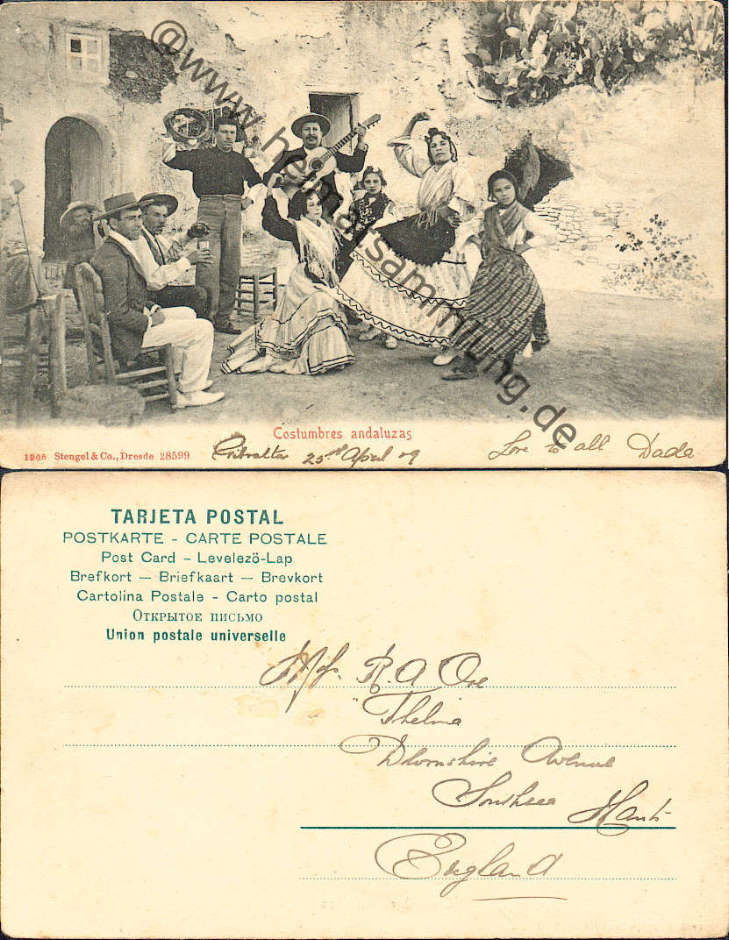 @www.heimatsammlung.de
Costumbres andaluzas
1906 Stengel & Co., Dresde 28599
Gibralta 25th April 09
Love to all Dada
TARJETA POSTAL
POSTKARTE - CARTE POSTALE
Post Card - Levelezö-Lap
Brefkort — Briefkaart — Brevkort
Cartolina Postale - Carto postal
Открытое письмо
Union postale universelle
Mrs. R. A Oxe
"Thelma
Devonshire Avenue
Southsea Hants
England